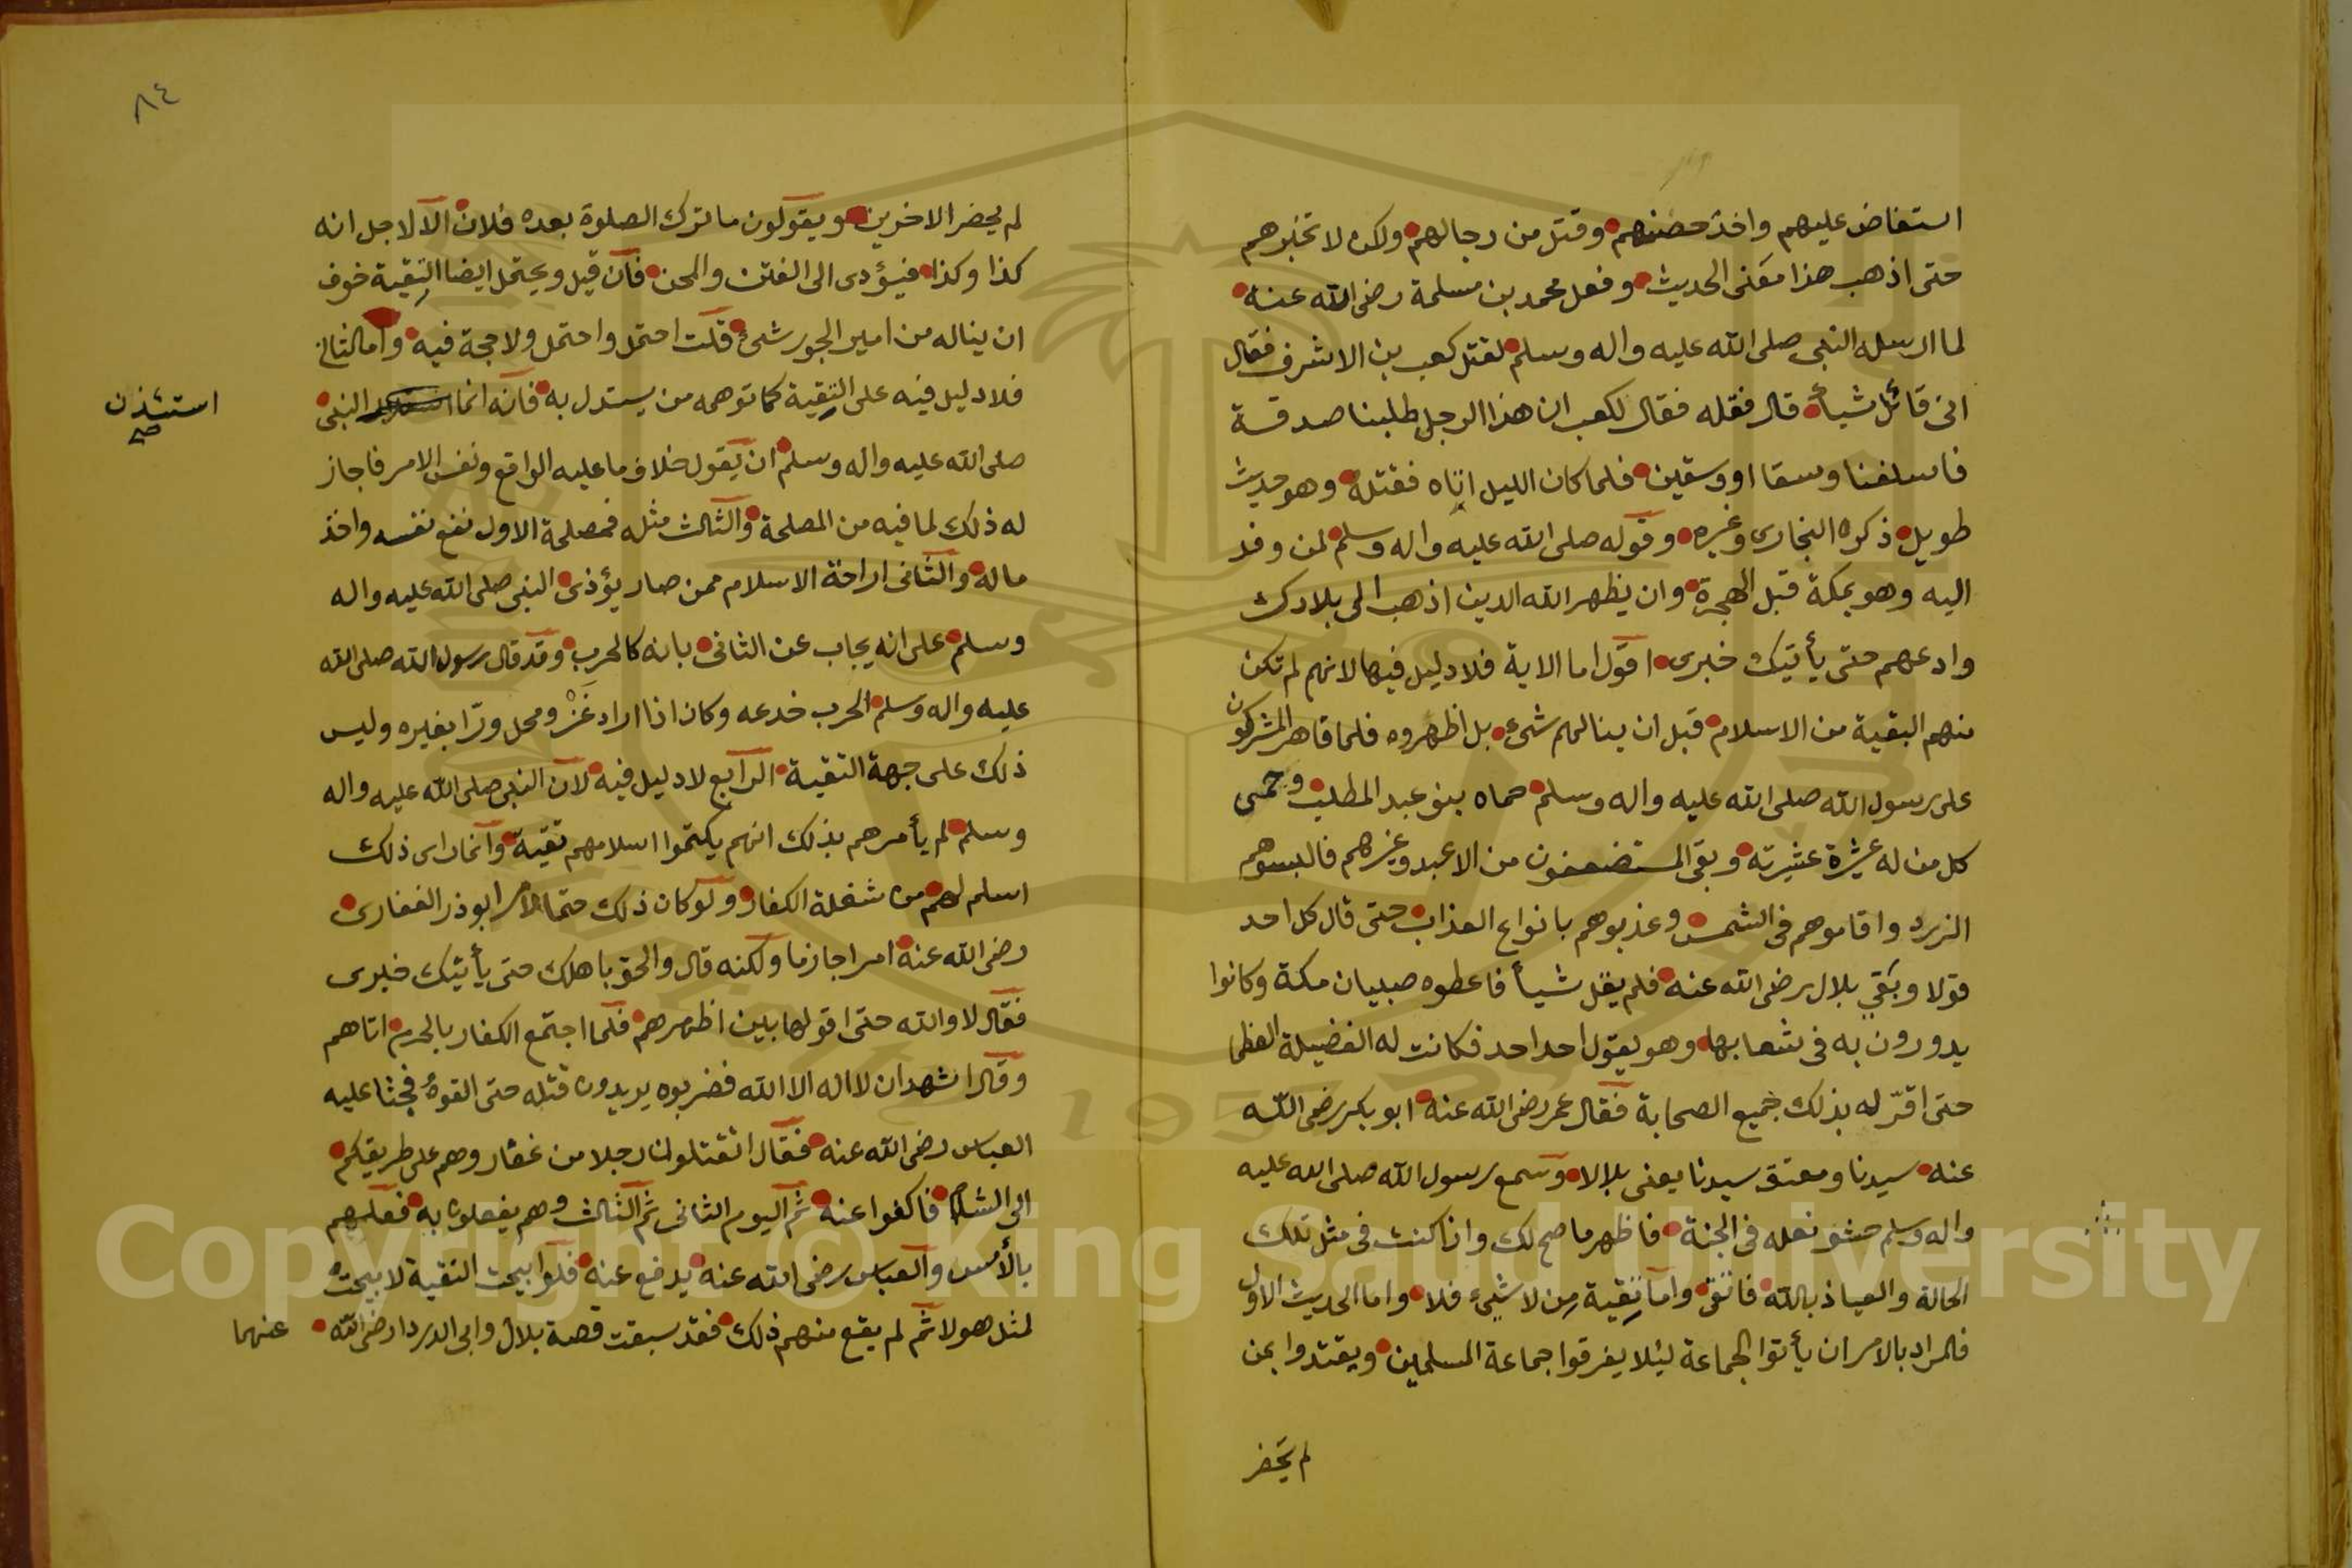 استفاض عليهم واخذ حصنهم وقتل من رجالهم ولكن لا تخبرهم
حتى اذهب هذا معنى الحديث وفعل محمد بن مسلمة رضى الله عنه
لما ارسله النبى صلى الله عليه واله وسلم لقتل كعب بن الاشرف فقال
انى قائل شيأ قال فقله فقال لكعب ان هذا الرجل طلبنا صدقة
فاسلفنا وسقا او وسقين فلما كان الليل اتاه فقتله وهو حديث
طويل ذكره البخارى وغيره وقوله صلى الله عليه واله وسلم لمن وفد
اليه وهو بمكة قبل الهجرة وان يظهر الله الدين اذهب الى بلادك
وادعهم حتى يأتيك خبرى اقول اما الاية فلا دليل فيها لانهم لم تكن
منهم البقية من الاسلام قبل ان ينالهم شىء بل اظهروه فلما قاهر المشركون
على رسول الله صلى الله عليه واله وسلم حماه بنو عبد المطلب وحمى
كل من له عشيرة عشيرته وبقى المستضعفون من الاعبد وغيرهم فالبسوهم
الزرد واقاموهم فى الشمس وعذبوهم بانواع العذاب حتى قال كل احد
قولا وبقي بلال رضى الله عنه فلم يقل شيأ فاعطوه صبيان مكة وكانوا
يدورون به فى شعابها وهو يقول احد احد فكانت له الفضيلة العظما
حتى اقرّ له بذلك جميع الصحابة فقال عمر رضى الله عنه ابو بكر رضى الله
عنه سيدنا ومعتق سيدنا يعنى بلالا وسمع رسول الله صلى الله عليه
واله وسلم حشو نعله فى الجنة فاظهر ما صح لك واذا كنت فى مثل تلك
الحالة والعياذ بالله فاتق واما تقية من لا شىء فلا واما الحديث الاول
فالمراد بالامر ان يأتوا الجماعة ليلا يفرقوا جماعة المسلمين ويقتدوا بمن
لم يحضر
٨٤
لم يحضر الاخرين ويقولون ما ترك الصلوة بعده فلان الا لاجل انه
كذا وكذا فيؤدى الى الفتن والمحن فان قيل ويحتمل ايضا التقية خوف
ان يناله من امير الجور شىء قلت احتمل واحتمل ولا حجة فيه واما الثانى
فلا دليل فيه على التقية كما توهمه من يستدل به فانه انما النبى
استئذن صح
صلى الله عليه واله وسلم ان يقول خلاف ما عليه الواقع ونفس الامر فاجاز
له ذلك لما فيه من المصلحة والثالث مثله فمصلحة الاول نفع نفسه واخذ
ماله والثانى اراحة الاسلام ممن صار يؤذى النبى صلى الله عليه واله
وسلم على انه يجاب عن الثانى بانه كالحرب وقد قال رسول الله صلى الله
عليه واله وسلم الحرب خدعه وكان اذا اراد غَزْو محل ورّا بغيره وليس
ذلك على جهة التقية الرابع لا دليل فيه لان النبى صلى الله عليه واله
وسلم لم يأمرهم بذلك انهم يكتموا اسلامهم تقية وانما راى ذلك
اسلم لهم من شغلة الكفار ولو كان ذلك حتما لامر ابو ذر الغفارى
رضى الله عنه امرا جازما ولكنه قال والحق باهلك حتى يأتيك خبرى
فقال لا والله حتى اقولها بين اظهرهم فلما اجتمع الكفار بالحرم اتاهم
وقال اشهد ان لا اله الا الله فضربوه يريدون قتله حتى القوه فجثا عليه
العباس رضى الله عنه فقال اتقتلون رجلا من غفار وهم على طريقكم
الى الشام فاكفوا عنه ثم اليوم الثانى ثم الثالث وهم يفعلون به فعلهم
بالأمس والعباس رضى الله عنه يدفع عنه فلو ابيحت التقية لابيحت
لمثل هولا ثم لم يقع منهم ذلك فقد سبقت قصة بلال وابى الدردا رضى الله عنهما
Copyright © King Saud University